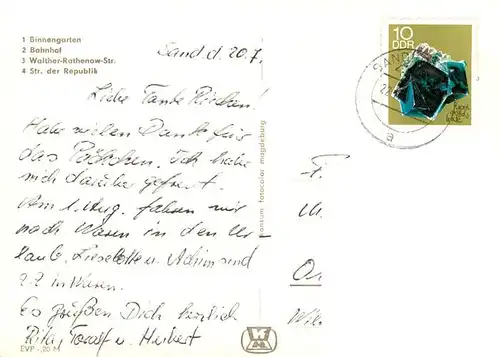 1 Binnengarten
2 Bahnhof
3 Walther-Rathenow-Str.
4 Str. der Republik
Sand, d. 20.7.
Liebe Tante
Habe vielen Dank für
das Päckchen. Ich habe
mich darüber gefreut.
Am 1. Aug. fahren wir
nach Waren in den Ur-
laub. Lieselotte u. Achim sind
z.Z. in Waren.
Es grüßen Dich herzlich
Rita, Toralf u. Herbert
EVP -,20 M
fotocolor magdeburg
10
DDR
a